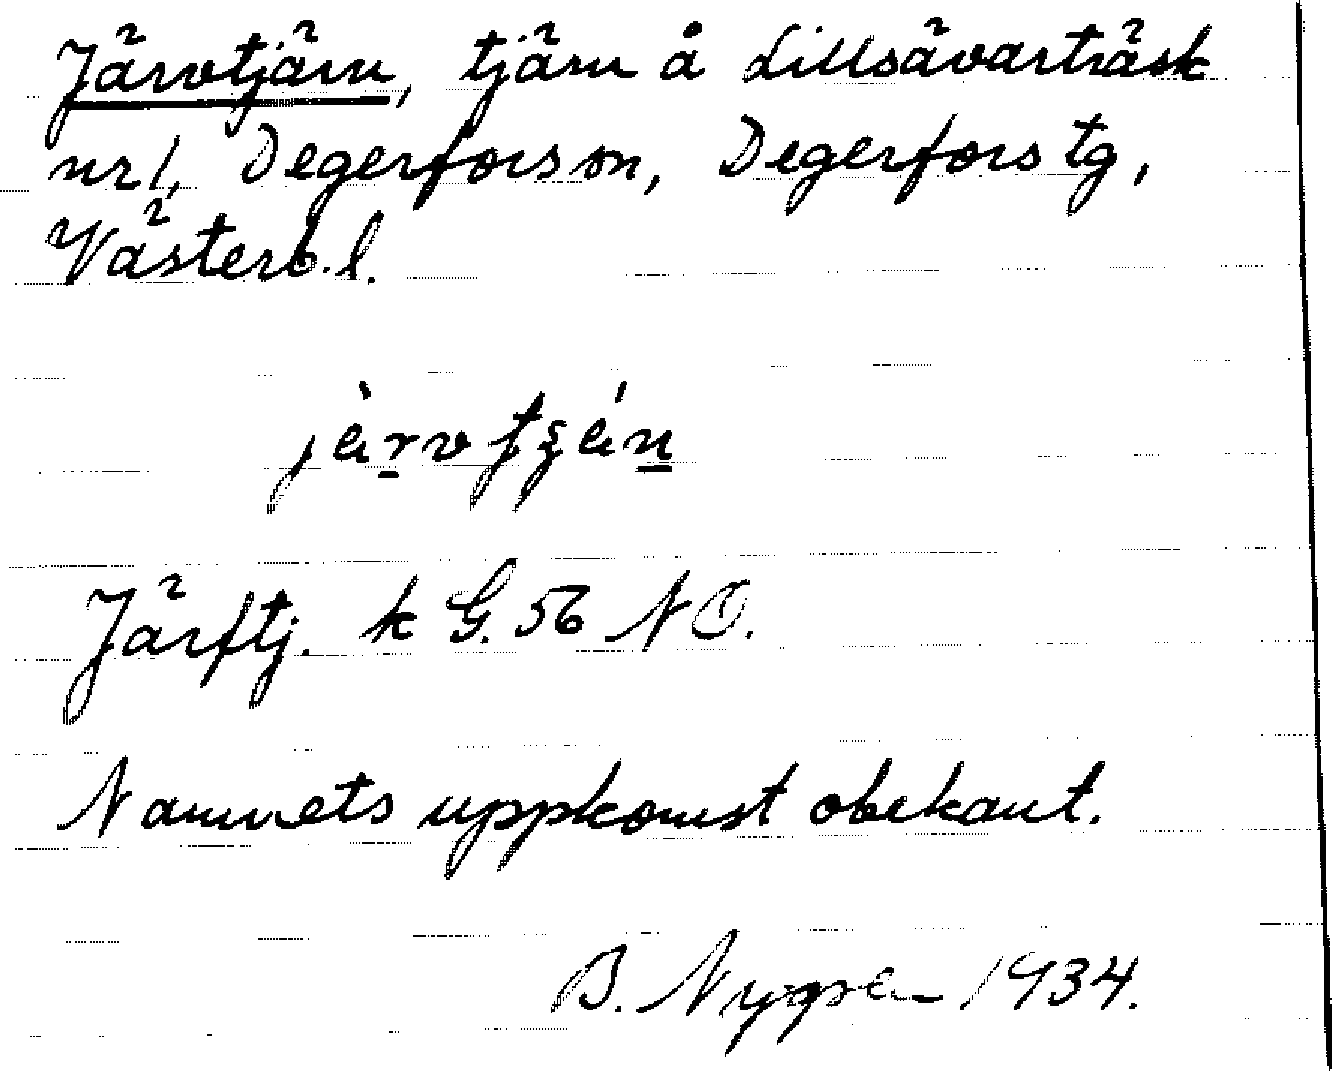 Järvtjärn, tjärn å Lillsävarträsk
nr 1, Degerforssn, Degerfors tg,
Västerb. l.
Järftj. k G. 56 NO.
Namnets uppkomst obekant.
B. Nygren 1934.